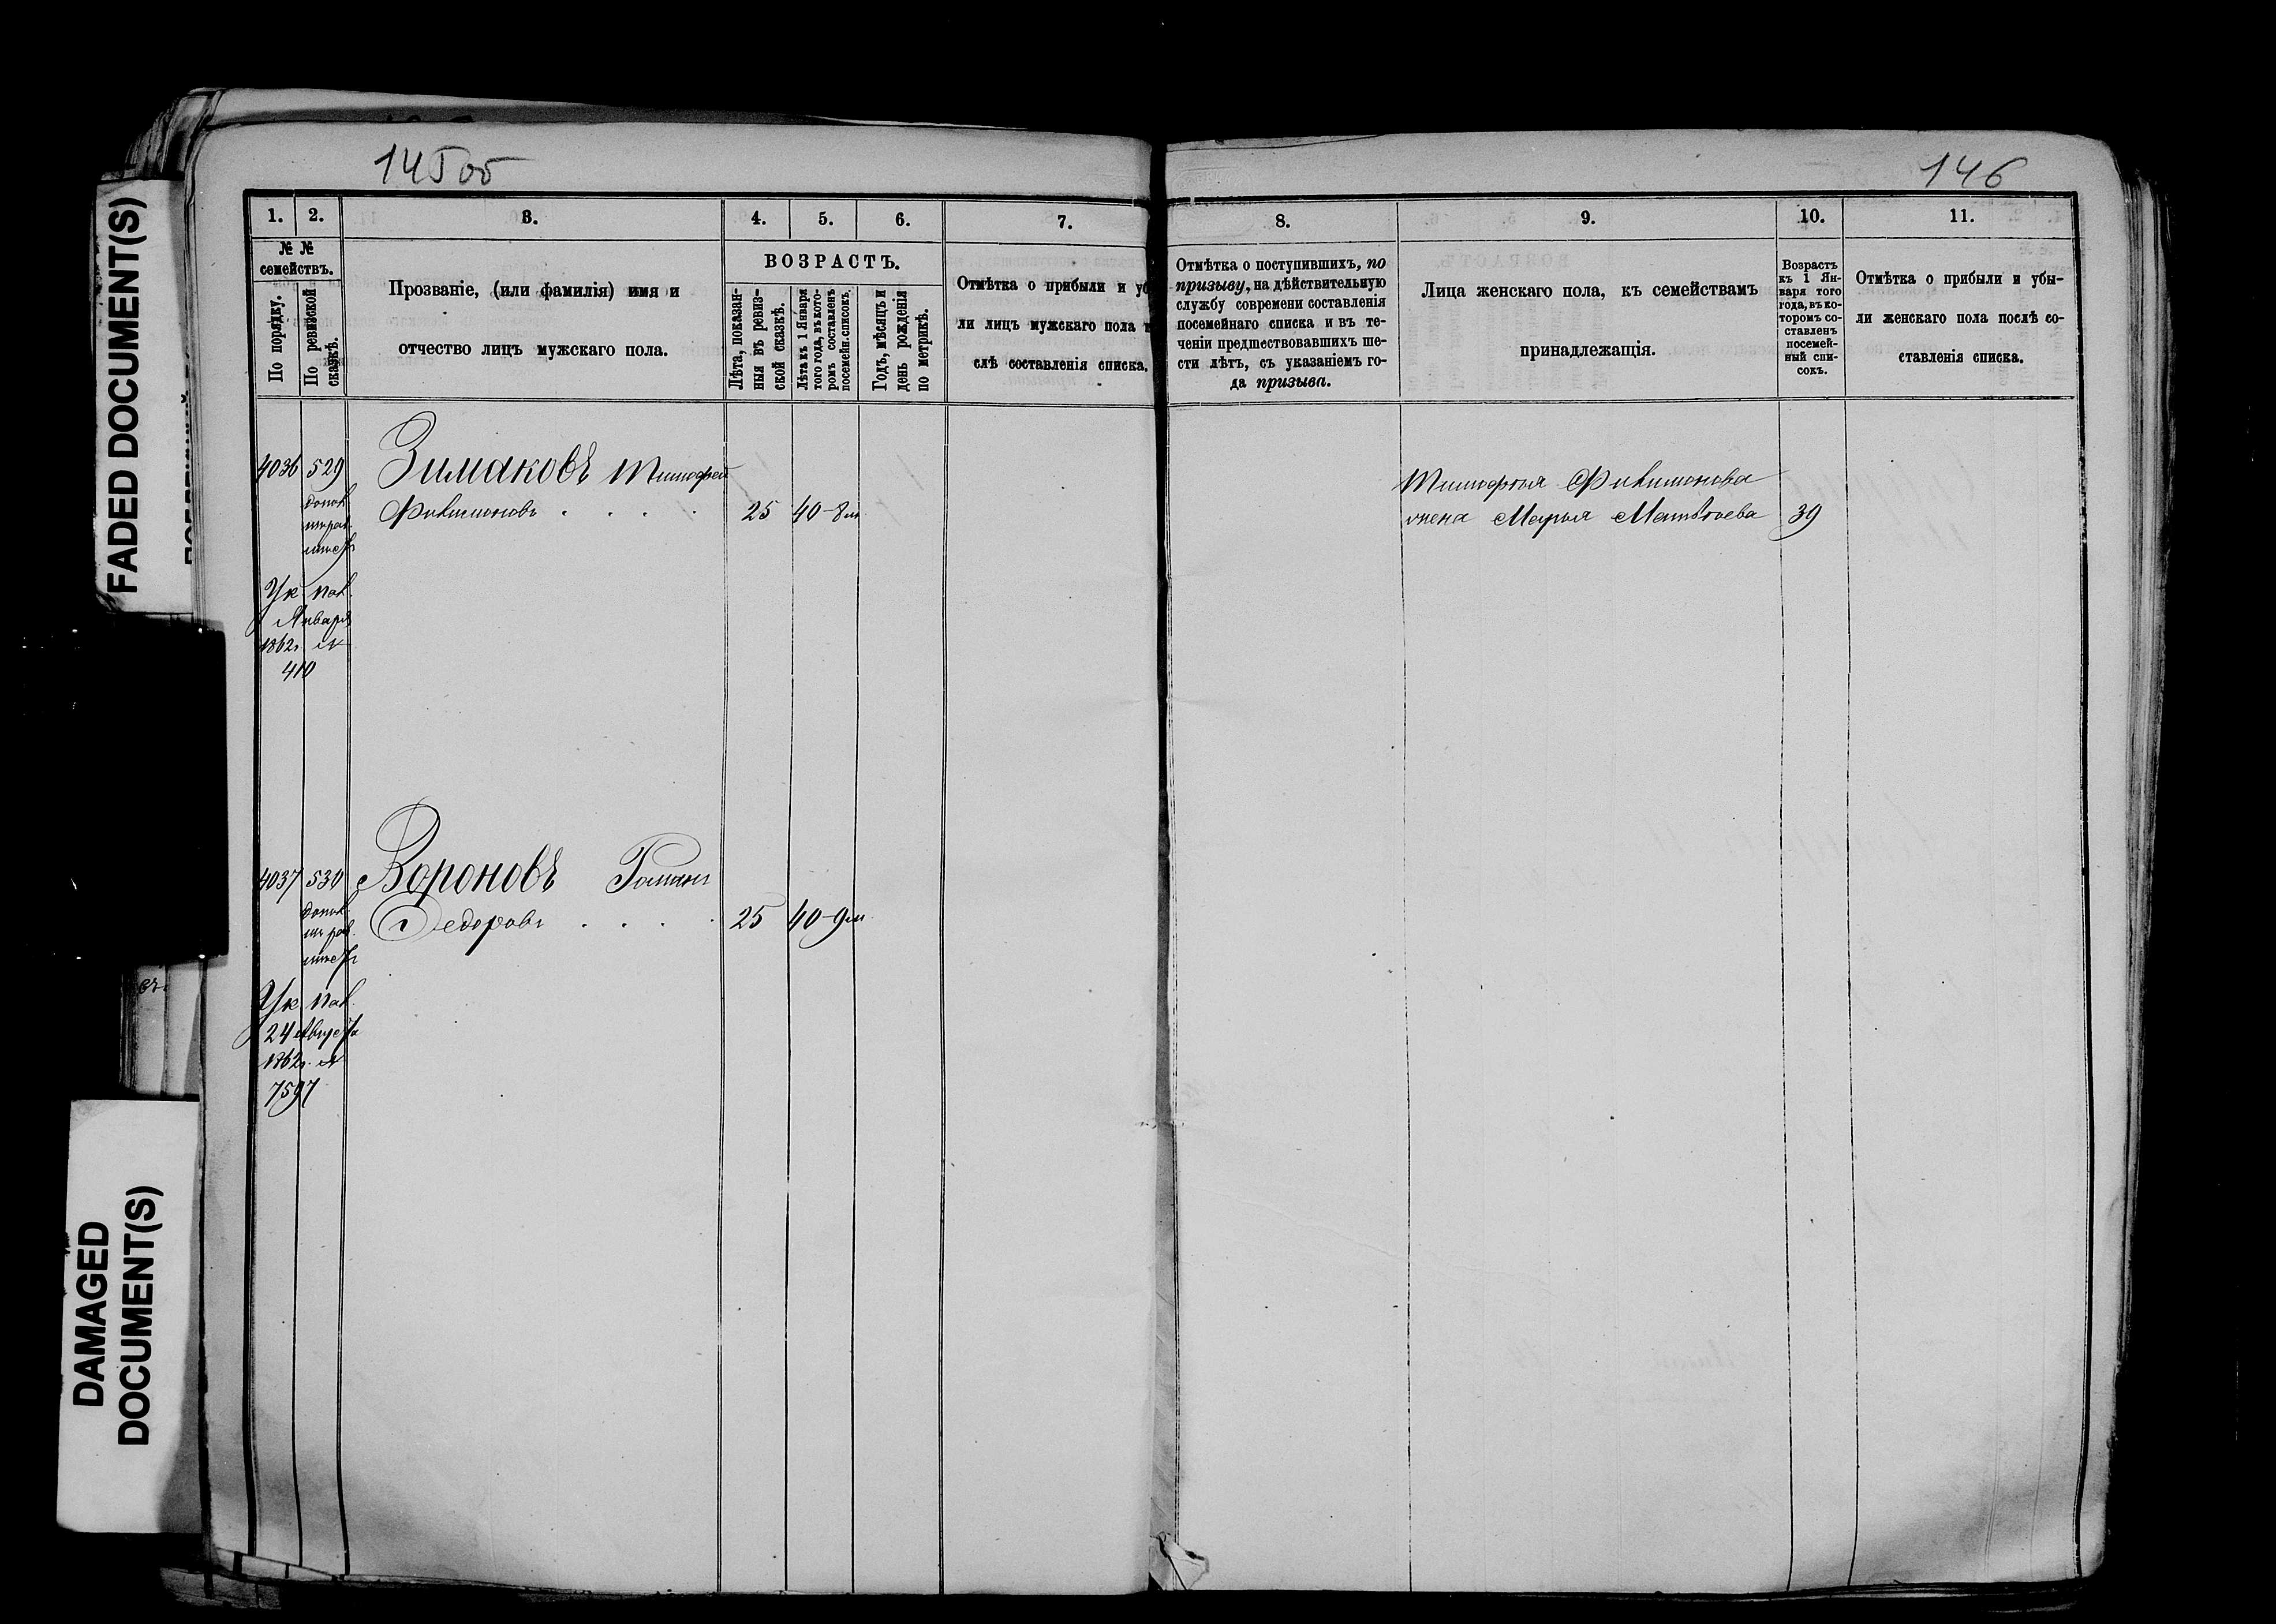 145об
146
FADED DOCUMENT(S)
DAMAGED
DOCUMENT(S)
1. 2. 3. 4. 5. 6. 7.
№ №
семействъ.
По порядку.
По ревизской
сказкѣ.
Прозваніе, (или фамилія) имя и
отчество лицъ мужскаго пола.
ВОЗРАСТЪ.
Лѣта, показан-
ныя въ ревиз-
ской сказкѣ.
Лѣта къ 1 Января
того года, въ кото-
ромъ составленъ
посемейн. списокъ.
Годъ, мѣсяцъ и
день рожденія
по метрикѣ.
Отмѣтка о прибыли и уб
ли лицъ мужскаго пола п
слѣ составленія списка.
4036 529 Зимаковъ Тимофей
Филимоновъ . . . . 25 40-8м
Ук
Января
1862г. №
410
4037 530 Вороновъ Романъ
Федоровъ . . . . 25 40-9м
Ук
24 Августа
1862г. №
7597
8. 9. 10. 11.
Отмѣтка о поступившихъ, по
призыву, на дѣйствительную
службу современи составленія
посемейнаго списка и въ те-
ченіи предшествовавшихъ ше-
сти лѣтъ, съ указаніемъ го-
да призыва.
Лица женскаго пола, къ семействамъ
принадлежащія.
Возрастъ
къ 1 Ян-
варя того
года, въ ко-
торомъ со-
ставленъ
посемей-
ный спи-
сокъ.
Отмѣтка о прибыли и убы-
ли женскаго пола послѣ со-
ставленія списка.
Тимофея Филимонова
жена Марья Матвѣева 39